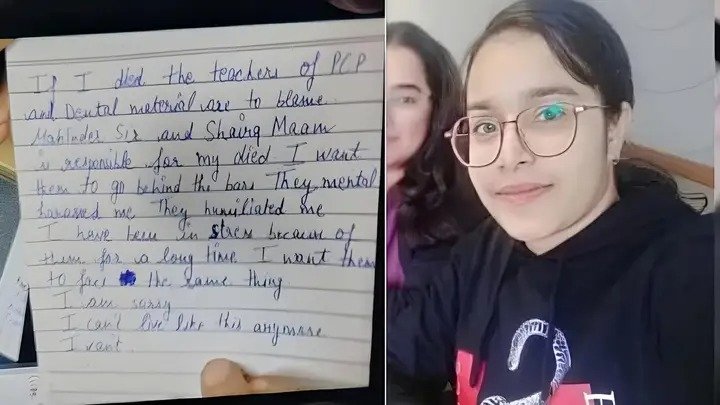 If I died the teachers of PCP
and Dental material are to blame.
Mahinder Sir and Shairg Maam
is responsible for my died I want
them to go behind the bars They mental
harassed me They humiliated me
I have been in stress because of
them for a long time I want them
to face the same thing
I am sorry
I can't live like this anymore
I cant
2